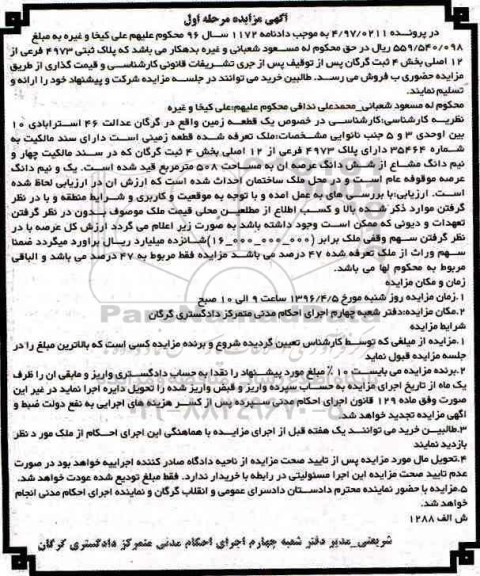 آگهی مزایده مرحله اول
در پرونده ۴/۹۷/۰۲۱۱ به موجب دادنامه ۱۱۷۲ سال ۹۶ محکوم علیهم علی کیخا و غیره به مبلغ
۵۵۹/۵۴۰/۰۹۸ ریال در حق محکوم له مسعود شعبانی و غیره بدهکار می باشد که پلاک ثبتی ۴۹۷۳ فرعی از
۱۲ اصلی بخش ۴ ثبت گرگان پس از توقیف پس از جری تشریفات قانونی کارشناسی و قیمت گذاری از طریق
مزایده حضوری ب فروش می رسد. طالبین خرید می توانند در جلسه مزایده شرکت و پیشنهاد خود را ارائه و
تسلیم نمایند.
محکوم له مسعود شعبانی_محمدعلی ندافی محکوم علیهم:علی کیخا و غیره
نظریه کارشناسی:کارشناسی در خصوص یک قطعه زمین واقع در گرگان عدالت ۴۶ استرابادی ۱۰
بین اوحدی ۳ و ۵ جنب نانوایی مشخصات:ملک تعرفه شده قطعه زمینی است دارای سند مالکیت به
شماره ۳۵۴۶۴ دارای پلاک ۴۹۷۳ فرعی از ۱۲ اصلی بخش ۴ ثبت گرگان که در سند مالکیت چهار و
نیم دانگ مشاع از شش دانگ عرصه ان به مساحت ۵۰۸ مترمربع قید شده است. یک و نیم دانگ
عرصه موقوفه عام است و در محل ملک ساختمان احداث شده است که ارزش ان در ارزیابی لحاظ شده
است. ارزیابی:با بررسی های به عمل امده و با توجه به موقعیت و کاربری و شرایط منطقه و با در نظر
گرفتن موارد ذکر شده بالا و کسب اطلاع از مطلعین محلی قیمت ملک موصوف بدون در نظر گرفتن
تعهدات و دیونی که ممکن است وجود داشته باشد به صورت زیر اعلام می گردد ارزش کل عرصه با در
نظر گرفتن سهم وقفی ملک برابر (۱۶_۰۰۰_۰۰۰_۰۰۰)شانزده میلیارد ریال براورد میگردد ضمنا
سهم وراث از ملک تعرفه شده ۴۷ درصد می باشد مزایده فقط مربوط به ۴۷ درصد می باشد و الباقی
مربوط به محکوم لها می باشد.
زمان و مکان مزایده
۱.زمان مزایده روز شنبه مورخ ۱۳۹۶/۴/۵ ساعت ۹ الی ۱۰ صبح
۲.مکان مزایده:دفتر شعبه چهارم اجرای احکام مدنی متمرکز دادگستری گرگان
شرایط مزایده
۱.مزایده از مبلغی که توسط کارشناس تعیین گردیده شروع و برنده مزایده کسی است که بالاترین مبلغ را در
جلسه مزایده قبول نماید
۲.برنده مزایده می بایست ۱۰ ٪ مبلغ مورد پیشنهاد را نقدا به حساب دادگستری واریز و مابقی ان را ظرف
یک ماه از تاریخ اجرای مزایده به حساب سپرده واریز و قبض واریز شده را تحویل دایره اجرا نماید در غیر این
صورت وفق ماده ۱۲۹ قانون اجرای احکام مدنی سپرده پس از کسر هزینه های اجرایی به نفع دولت ضبط و
آگهی مزایده تجدید خواهد شد.
۳.طالبین خرید می توانند یک هفته قبل از اجرای مزایده با هماهنگی این اجرای احکام از ملک مور د نظر
بازدید نمایند
۴.تحویل مال مورد مزایده پس از تایید صحت مزایده از ناحیه دادگاه صادر کننده اجراییه خواهد بود در صورت
عدم تایید صحت مزایده این اجرا مسئولیتی در رابطه با خریدار ندارد. فقط مبلغ تودیع شده عودت خواهد شد.
۵.مزایده با حضور نماینده محترم دادستان دادسرای عمومی و انقلاب گرگان و نماینده اجرای احکام مدنی انجام
خواهد شد.
ش الف ۱۲۸۸
شریعتی_مدیر دفتر شعبه چهارم اجرای احکام مدنی متمرکز دادگستری گرگان